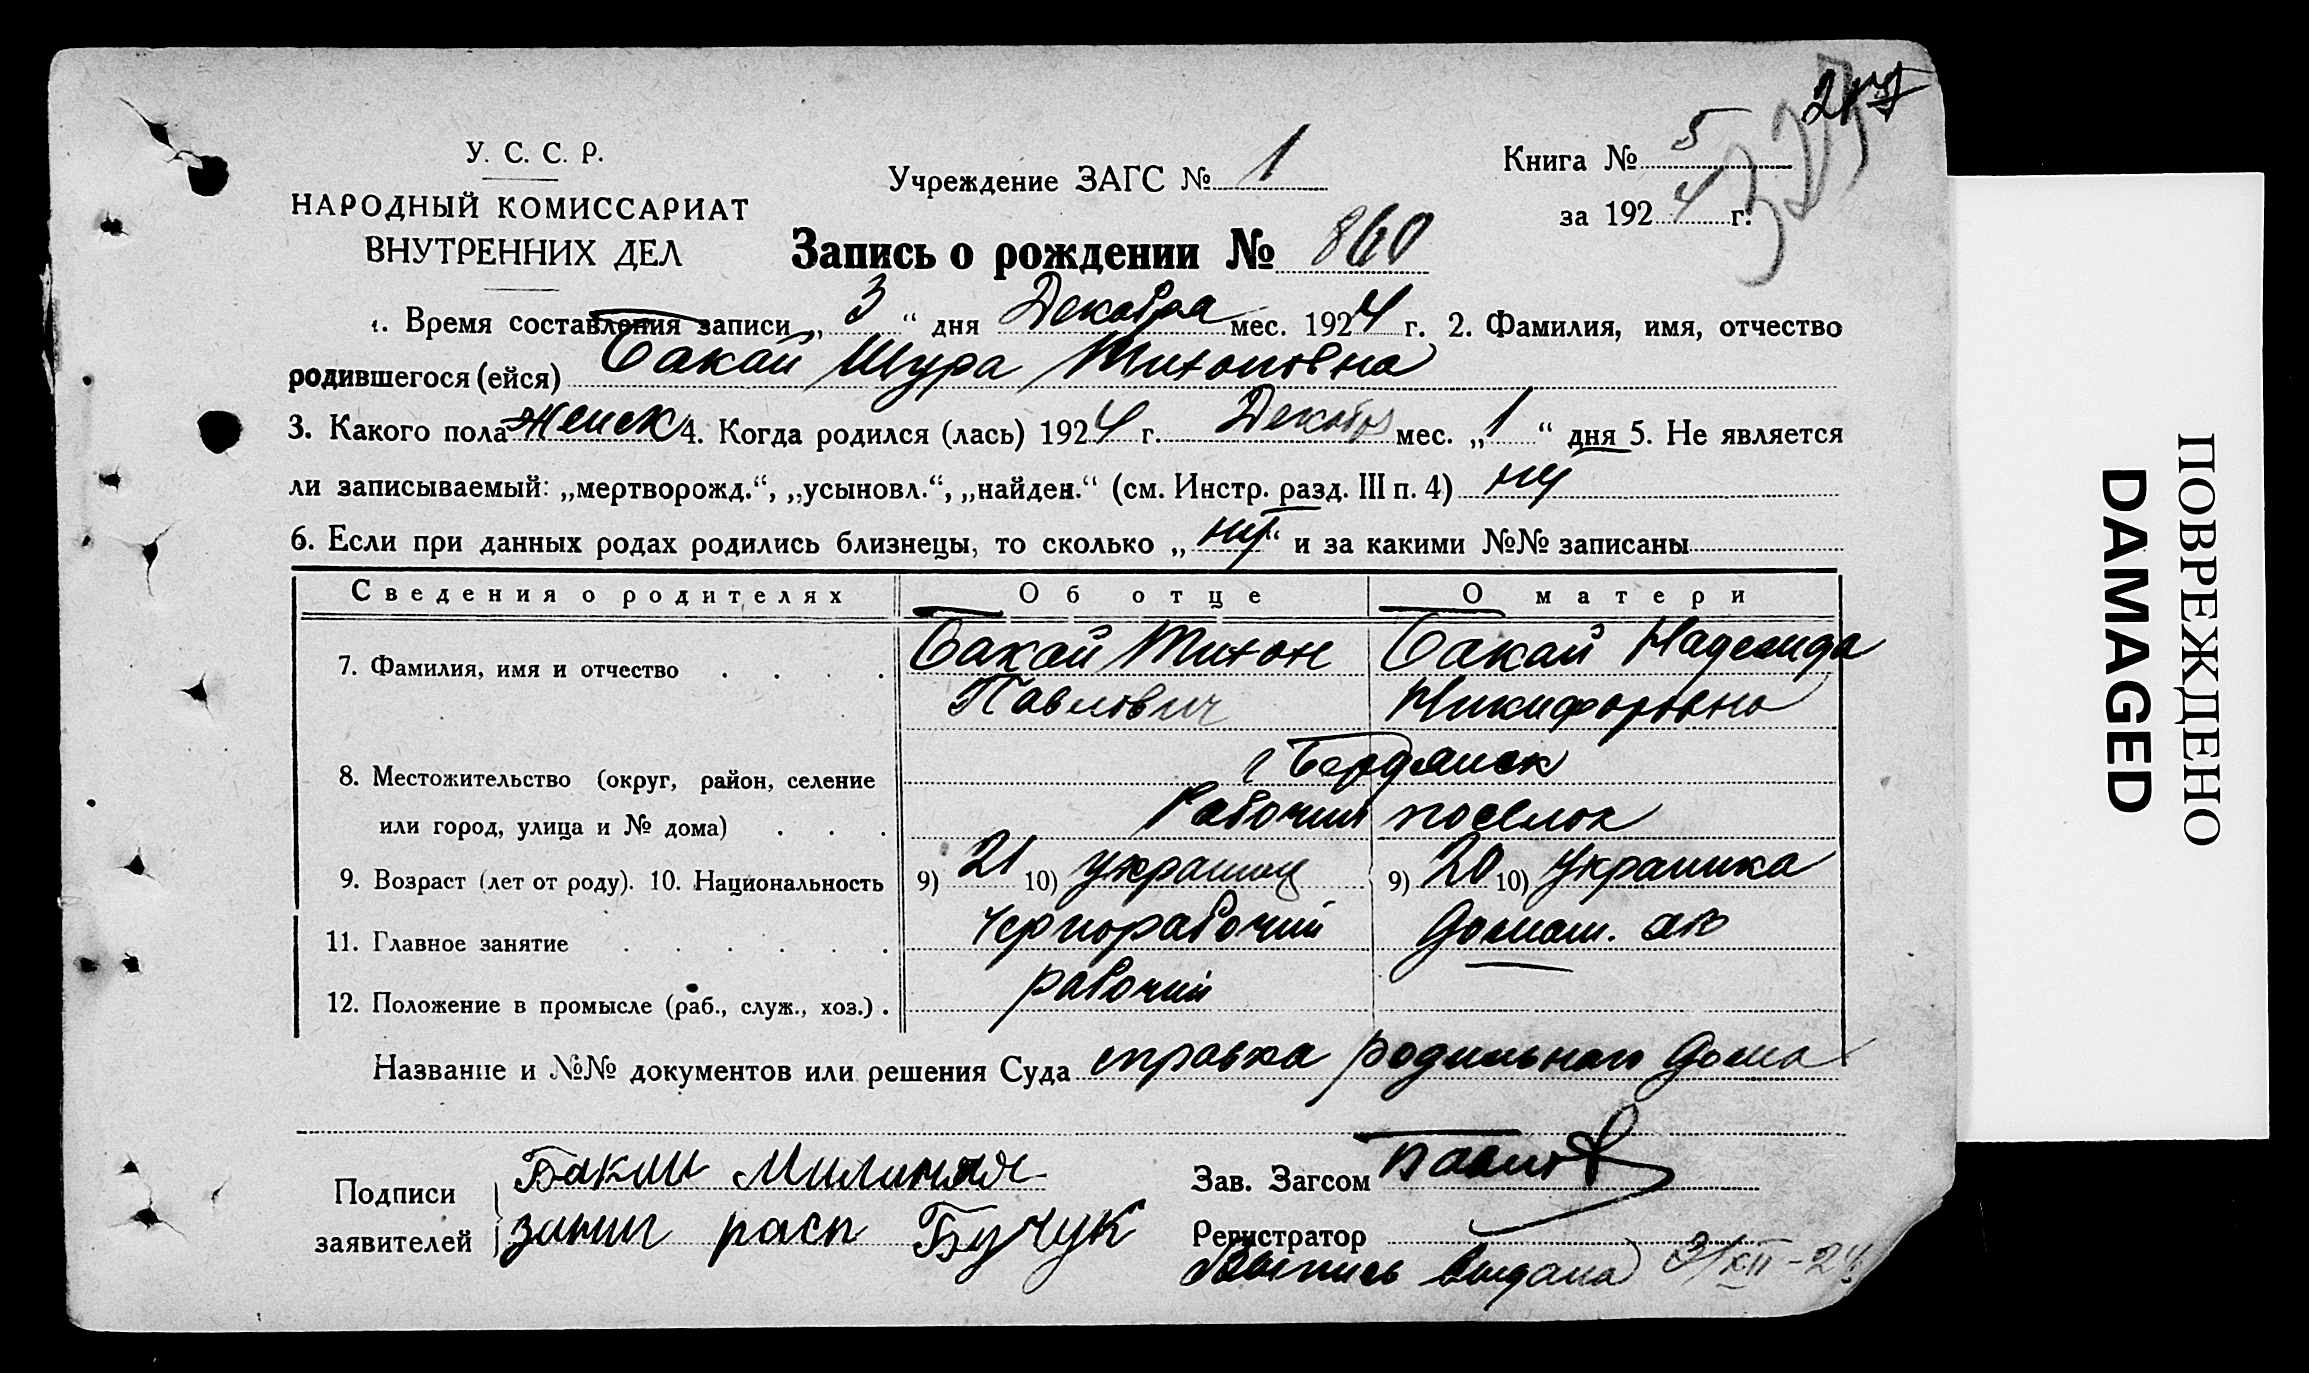 У. С. С. Р.
НАРОДНЫЙ КОМИССАРИАТ
ВНУТРЕННИХ ДЕЛ
Учреждение ЗАГС № 1
Книга № 5
за 1924 г.
Запись о рождении № 860
1. Время составления записи „ 3 “ дня Декабря мес. 1924 г. 2. Фамилия, имя, отчество
родившегося (ейся) Бакай Шура Тихоновна
3. Какого пола женск 4. Когда родился (лась) 1924 г. Декабря мес. „ 1 “ дня 5. Не является
ли записываемый: „мертворожд.“, „усыновл.“, „найден.“ (см. Инстр. разд. III п. 4) нет
6. Если при данных родах родились близнецы, то сколько „ нет “ и за какими №№ записаны
Сведения о родителях Об отце О матери
7. Фамилия, имя и отчество Бакай Тихон Бакай Надежда
Павлович Никифоровна
8. Местожительство (округ, район, селение г Бердянск
или город, улица и № дома) Рабочий поселок
9. Возраст (лет от роду). 10. Национальность 9) 21 10) украинец 9) 20 10) Украинка
11. Главное занятие Чернорабочий домаш. хоз
12. Положение в промысле (раб., служ., хоз.) рабочий
Название и №№ документов или решения Суда справка родильного дома
Подписи
заявителей
Зав. Загсом
расп Бучук
Регистратор
Выпись выдана 3/XII-24
ПОВРЕЖДЕНО
DAMAGED